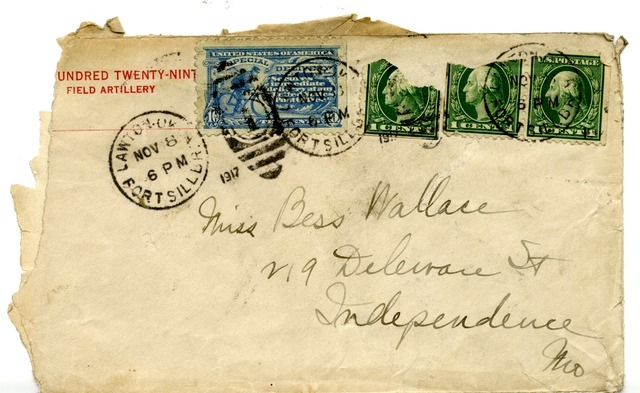 UNDRED TWENTY-NINT
FIELD ARTILLERY
UNITED STATES OF AMERICA
SPECIAL
LAWTON-OK
NOV 8
6 PM
FORT SILL
1917
FORT SILL
6 PM
1 CENT
1 CENT
U.S. POSTAGE
NOV
6 PM
Miss Bess Wallace
219 Deleware St
Independence
Mo